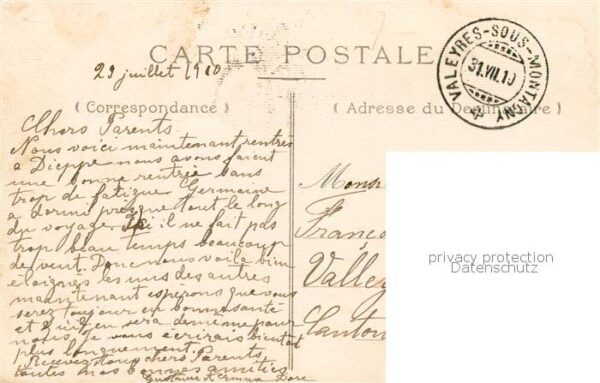 CARTE POSTALE
29 juillet 1910
VALEYRES-SOUS-MONTAGNY
31.VII.10
(Correspondance)
(Adresse du Destinataire)
Chers Parents
Nous voici maintenant rentrés
a Dieppe nous avons faient
une bonne rentrée sans
trop de fatigue Germaine
a dormi presque tout le long
du voyage. Ici il ne fait pas
trop beau temps beaucoup
de vent. Donc nous voila bien
eloignes les uns des autres
maintenant espérons que vous
serez toujour en bonne santé
et qu'il en sera de meme pour
nous. Je vous écrirais bientot
plus longuement.
Recevez tous chers Parents
toutes nos bonnes amitiés
Gustave Germina Dore
Mons
Franço
Valley
Canton
privacy protection
Datenschutz